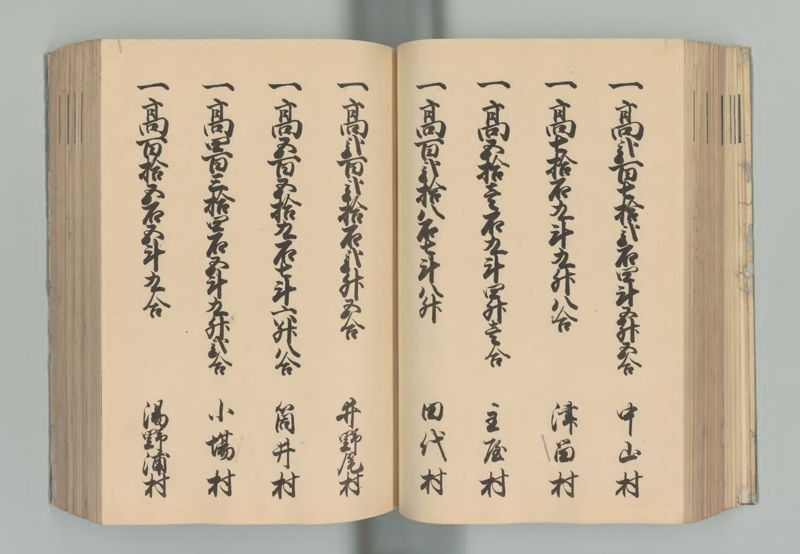 一高弐百七拾弐石四斗五升五合 中山村
一高七拾石九斗九升八合 津留村
一高五拾壱石九斗四升壱合 主屋村
一高百弐拾八石七斗八升 田代村
一高弐百弐拾石弐升五合 井野尾村
一高五百五拾九石七斗六升八合 筒井村
一高四百三拾四石五斗九升弐合 小場村
一高百拾五石五斗九合 湯野浦村